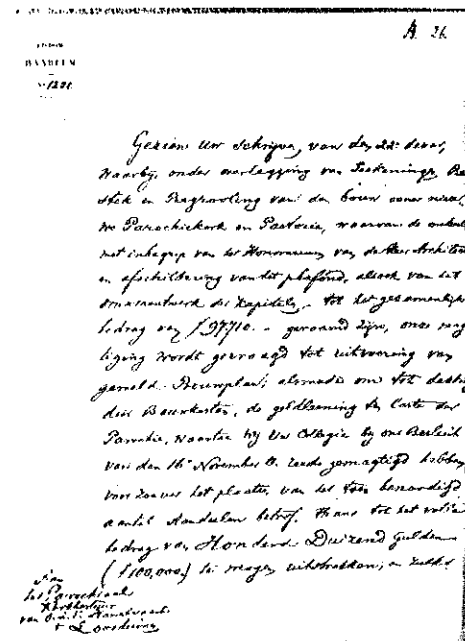 A 26
BISDOM
HAARLEM
Gezien Uw Schrijven van den 22e dezer,
waarbij, onder overlegging van Teekeningen, Be
stek en Begrooting van den bouw eener nieu
we Parochiekerk en Pastorie, waarvan de
met inbegrip van het Honorarium van den Heer Architect
en afschildering van het plafond, alsook van het
ornamentwerk der Kapiteelen, tot het gezamenlijk
bedrag van f 97710.- geraamd zijn, onze mag
tiging wordt gevraagd tot uitvoering van
gemeld Bouwplan; alsmede om tot dekking
dier Bouwkosten, de geldleening ten laste der
Parochie, waartoe wij Uw Collegie bij ons Besluit
van den 16n November ll. reeds gemagtigd hebben,
voor zoover het plaatsen van het toen benoodigd
aantal Aandeelen betrof. Thans tot het volle
bedrag van Honderd Duizend Gulden
(f100,000.) te mogen uitstrekken; en zulks
Aan
het Parochiaal
Kerkbestuur
van
Loosduinen